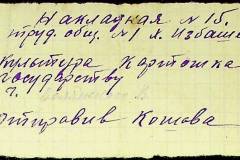 Накладная № 15.
труд. общ. № 1 х. Избаше
Культура Картошка
Государству
Отправив Котова